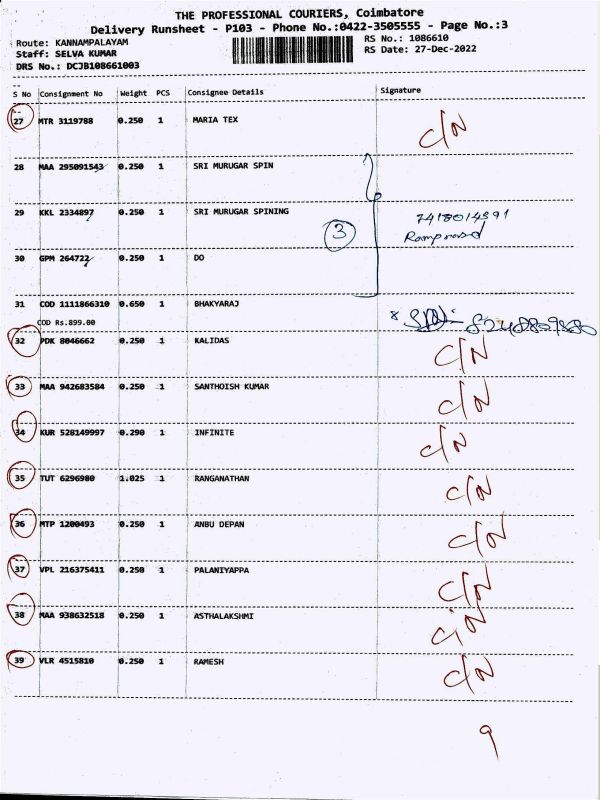 THE PROFESSIONAL COURIERS, Coimbatore
Delivery Runsheet - P103 - Phone No.:0422-3505555 - Page No.:3
Route: KANNAMPALAYAM
RS No.: 1086610
Staff: SELVA KUMAR
RS Date: 27-Dec-2022
DRS No.: DCJB108661003
S No Consignment No Weight PCS Consignee Details Signature
27 MTR 3119788 0.250 1 MARIA TEX C/N
28 MAA 295091543 0.250 1 SRI MURUGAR SPIN
29 KKL 2334897 0.250 1 SRI MURUGAR SPINING
3
7418014891
Ramprasad
30 GPM 264722 0.250 1 DO
31 COD 1111866310 0.650 1 BHAKYARAJ
COD Rs.899.00
32 PDK 8046662 0.250 1 KALIDAS C/N
33 MAA 942683584 0.250 1 SANTHOISH KUMAR C/N
34 KUR 528149997 0.290 1 INFINITE C/N
35 TUT 6296980 1.025 1 RANGANATHAN C/N
36 MTP 1200493 0.250 1 ANBU DEPAN C/N
37 VPL 216375411 0.250 1 PALANIYAPPA C/N
38 MAA 938632518 0.250 1 ASTHALAKSHMI C/N
39 VLR 4515810 0.250 1 RAMESH C/N
9